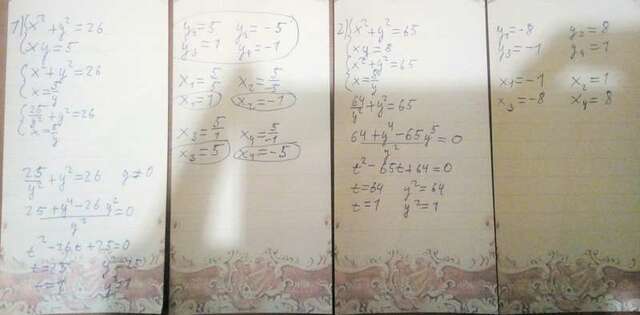 1) { x² + y² = 26
{ xy = 5
{ x² + y² = 26
{ x = 5/y
{ 25/y² + y² = 26
{ x = 5/y
25/y² + y² = 26 y ≠ 0
(25 + y⁴ - 26y²)/y² = 0
t² - 26t + 25 = 0
t = 25 y² = 25
t = 1 y² = 1
y₁ = 5 y₂ = -5
y₃ = 1 y₄ = -1
x₁ = 5/5 x₂ = 5/-5
x₁ = 1 x₂ = -1
x₃ = 5/1 x₄ = 5/-1
x₃ = 5 x₄ = -5
2) { x² + y² = 65
{ xy = 8
{ x² + y² = 65
{ x = 8/y
64/y² + y² = 65
(64 + y⁴ - 65y²)/y² = 0
t² - 65t + 64 = 0
t = 64 y² = 64
t = 1 y² = 1
y₁ = -8 y₂ = 8
y₃ = -1 y₄ = 1
x₁ = -1 x₂ = 1
x₃ = -8 x₄ = 8